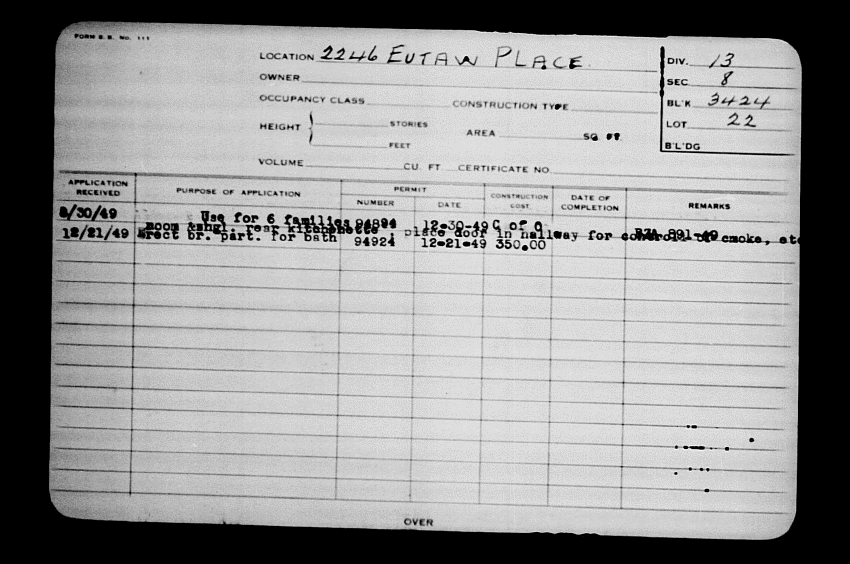 FORM B.B. No. 111
LOCATION 2246 EUTAW PLACE
OWNER
OCCUPANCY CLASS CONSTRUCTION TYPE
HEIGHT STORIES AREA SQ FT.
FEET
VOLUME CU. FT CERTIFICATE NO.
DIV. 13
SEC 8
BL'K 3424
LOT 22
B'L'DG
APPLICATION RECEIVED PURPOSE OF APPLICATION PERMIT NUMBER DATE CONSTRUCTION COST DATE OF COMPLETION REMARKS
8/30/49 Use for 6 families 94894 12-30-49 C of O BZA 891-49
room &shgl. rear kitchenette ; place door in hallway for control of smoke, etc
12/21/49 Erect br. part. for bath 94924 12-21-49 350.00
OVER